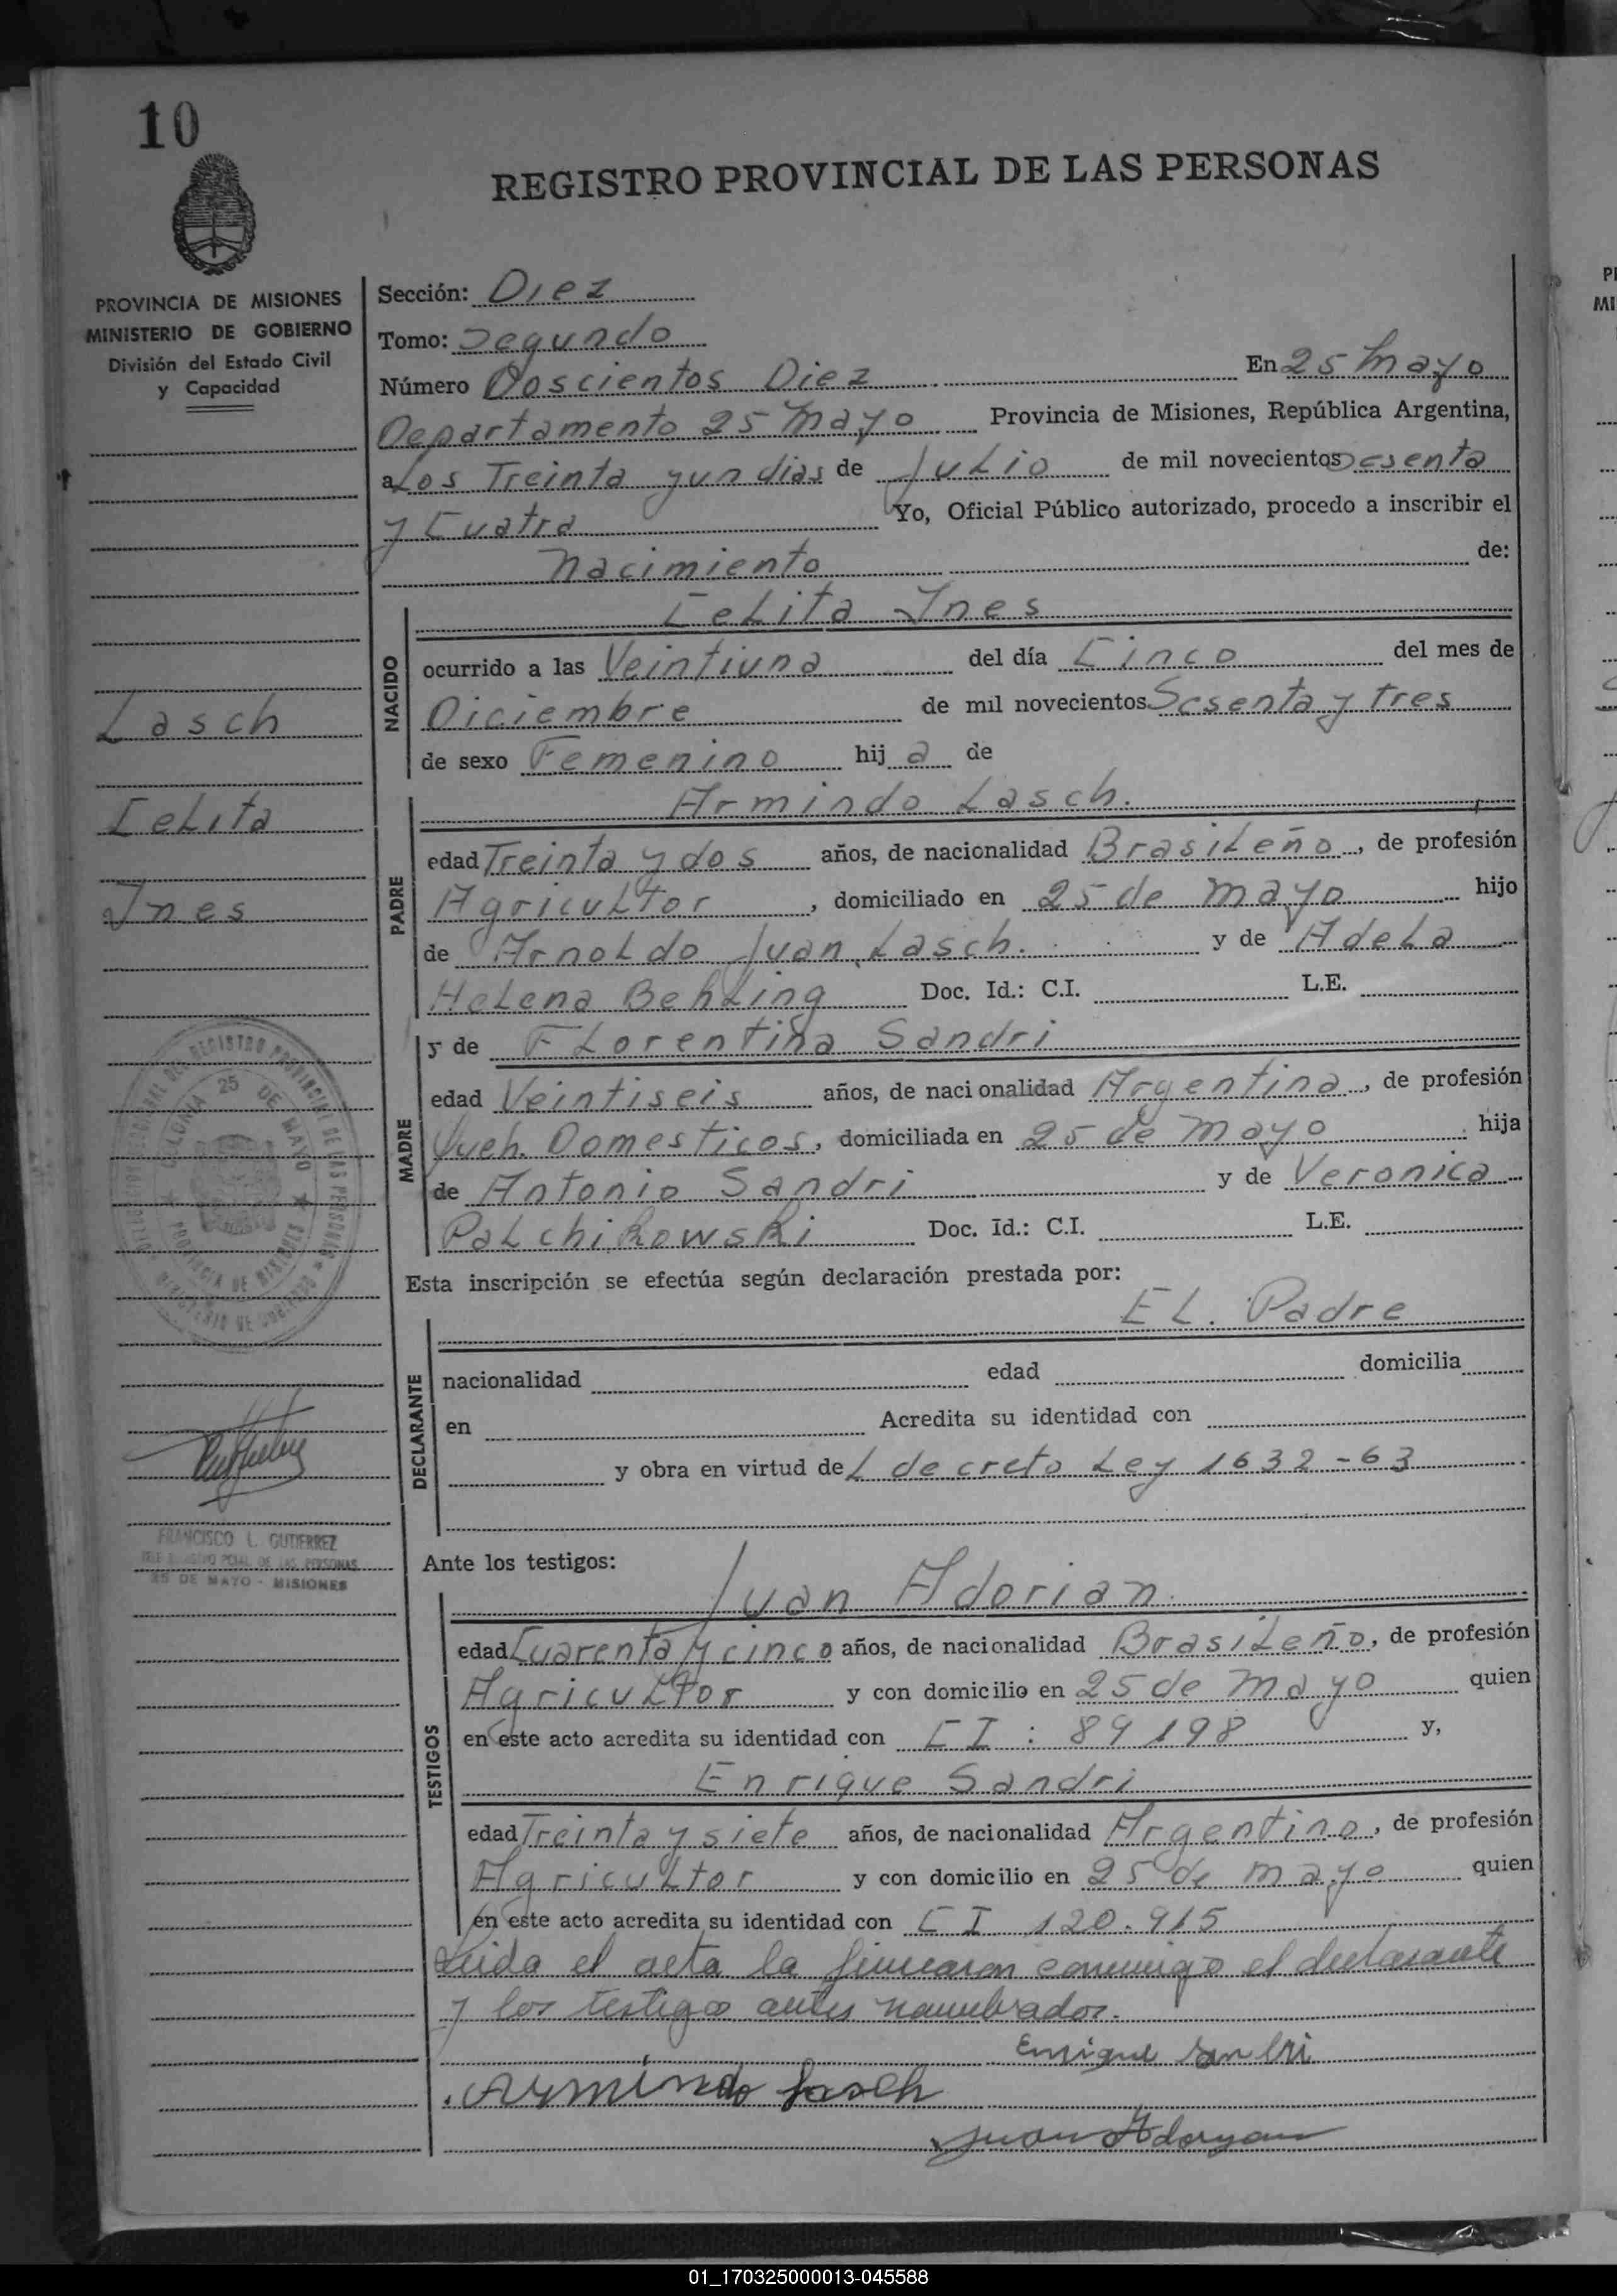 10
REGISTRO PROVINCIAL DE LAS PERSONAS
PROVINCIA DE MISIONES
MINISTERIO DE GOBIERNO
División del Estado Civil
y Capacidad
Sección: Diez
Tomo: Segundo
Número Doscientos Diez En 25 Mayo
Departamento 25 Mayo Provincia de Misiones, República Argentina,
a Los Treinta y un dias de Julio de mil novecientos Sesenta
y Cuatro Yo, Oficial Público autorizado, procedo a inscribir el
nacimiento de:
Celita Ines
NACIDO
ocurrido a las Veintiuna del día Cinco del mes de
Diciembre de mil novecientos Sesenta y tres
de sexo Femenino hij a de
Lasch
Celita
Ines
Armindo Lasch.
PADRE
edad Treinta y dos años, de nacionalidad Brasileño, de profesión
Agricultor, domiciliado en 25 de mayo hijo
de Arnoldo Juan Lasch. y de Adela
Helena Behling Doc. Id.: C.I. L.E.
y de Florentina Sandri
MADRE
edad Veintiseis años, de nacionalidad Argentina, de profesión
Queh. Domesticos, domiciliada en 25 de mayo hija
de Antonio Sandri y de Veronica
Palchikowski Doc. Id.: C.I. L.E.
REGISTRO PROVINCIAL DE LAS PERSONAS
COLONIA 25 DE MAYO
PROVINCIA DE MISIONES
Esta inscripción se efectúa según declaración prestada por:
EL. Padre
DECLARANTE
nacionalidad edad domicilia
en Acredita su identidad con
y obra en virtud de L decreto Ley 1632-63
FRANCISCO L. GUTIERREZ
DE LAS PERSONAS
25 DE MAYO - MISIONES
Ante los testigos:
Juan Adorian
TESTIGOS
edad Cuarenta y cinco años, de nacionalidad Brasileño, de profesión
Agricultor y con domicilio en 25 de mayo quien
en este acto acredita su identidad con CI: 89198 y,
Enrique Sandri
edad Treinta y siete años, de nacionalidad Argentino, de profesión
Agricultor y con domicilio en 25 de mayo quien
en este acto acredita su identidad con CI 120.915
Leida el acta la firmaron conmigo el declarante
y los testigos antes nombrados.
Enrique Sandri
Armindo Lasch
Juan Adoryan
01_170325000013-045588